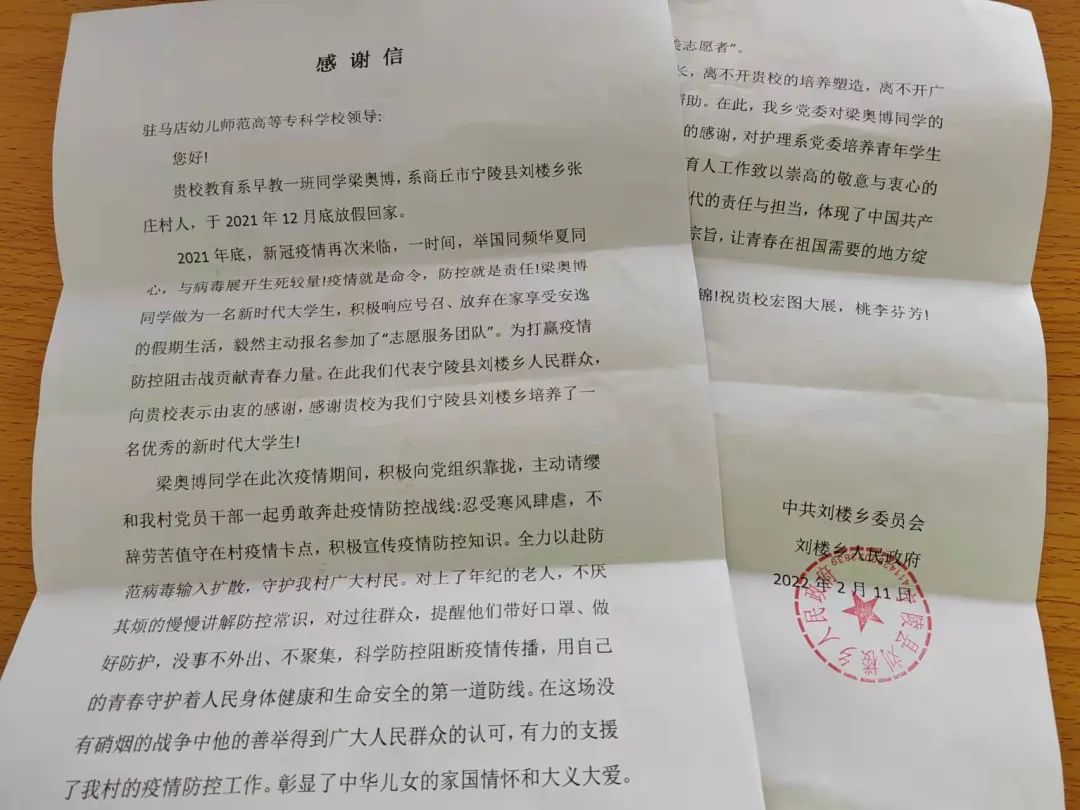 感谢信
驻马店幼儿师范高等专科学校领导:
您好!
贵校教育系早教一班同学梁奥博，系商丘市宁陵县刘楼乡张
庄村人，于 2021 年 12 月底放假回家。
2021 年底，新冠疫情再次来临，一时间，举国同频华夏同
心，与病毒展开生死较量!疫情就是命令，防控就是责任!梁奥博
同学做为一名新时代大学生，积极响应号召、放弃在家享受安逸
的假期生活，毅然主动报名参加了“志愿服务团队”。为打赢疫情
防控阻击战贡献青春力量。在此我们代表宁陵县刘楼乡人民群众，
向贵校表示由衷的感谢，感谢贵校为我们宁陵县刘楼乡培养了一
名优秀的新时代大学生!
梁奥博同学在此次疫情期间，积极向党组织靠拢，主动请缨
和我村党员干部一起勇敢奔赴疫情防控战线:忍受寒风肆虐，不
辞劳苦值守在村疫情卡点，积极宣传疫情防控知识。全力以赴防
范病毒输入扩散，守护我村广大村民。对上了年纪的老人，不厌
其烦的慢慢讲解防控常识，对过往群众，提醒他们带好口罩、做
好防护，没事不外出、不聚集，科学防控阻断疫情传播，用自己
的青春守护着人民身体健康和生命安全的第一道防线。在这场没
有硝烟的战争中他的善举得到广大人民群众的认可，有力的支援
了我村的疫情防控工作。彰显了中华儿女的家国情怀和大义大爱。
志愿者”。
长，离不开贵校的培养塑造，离不开广
帮助。在此，我乡党委对梁奥博同学的
的感谢，对护理系党委培养青年学生
育人工作致以崇高的敬意与衷心的
代的责任与担当，体现了中国共产
宗旨，让青春在祖国需要的地方绽
锦!祝贵校宏图大展，桃李芬芳!
中共刘楼乡委员会
刘楼乡人民政府
2022 年 2 月 11 日
宁陵县刘楼乡人民政府